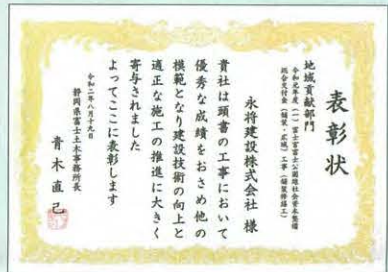 表彰状
地域貢献部門
令和元年度(一)富士富士公園線社会資本整備
総合交付金(舗装・広域)工事(舗装修繕工)
永将建設株式会社 様
貴社は頭書の工事において
優秀な成績をおさめ他の
模範となり建設技術の向上と
適正な施工の推進に大きく
寄与されました
よってここに表彰します
令和二年八月十九日
静岡県富士土木事務所長
青木直己